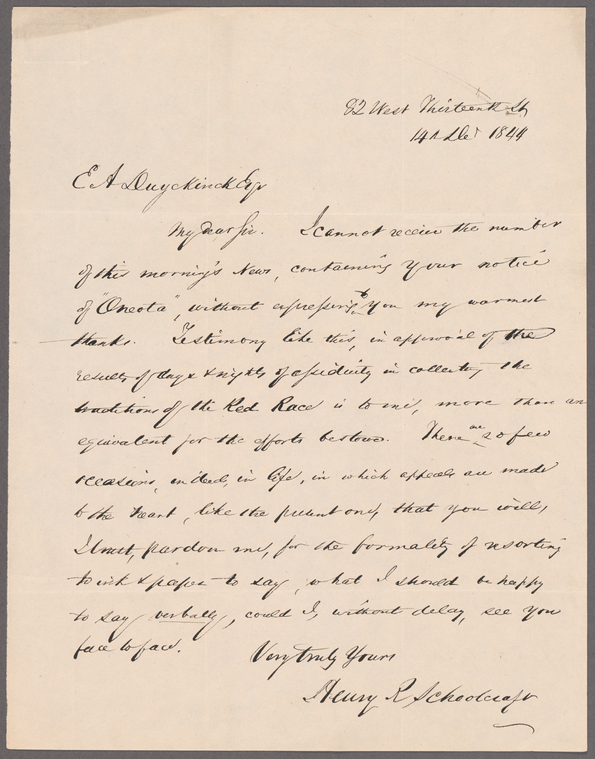 82 West Thirteenth St,
14th Dec 1844
E A Duyckinck Esqr
My dear Sir. I cannot receive the number
of this morning's News, containing your notice
of "Oneota", without expressing to you my warmest
thanks. Testimony like this, in approval of the
results of days & nights of assiduity in collecting the
traditions of the Red Race is to me, more than an
equivalent for the efforts bestowed. There are so few
occasions, indeed, in life, in which appeals are made
to the heart, like the present one, that you will,
I trust, pardon me, for the formality of resorting
to ink & paper to say, what I should be happy
to say verbally, could I, without delay, see you
face to face.
Very truly Yours
Henry R Schoolcraft